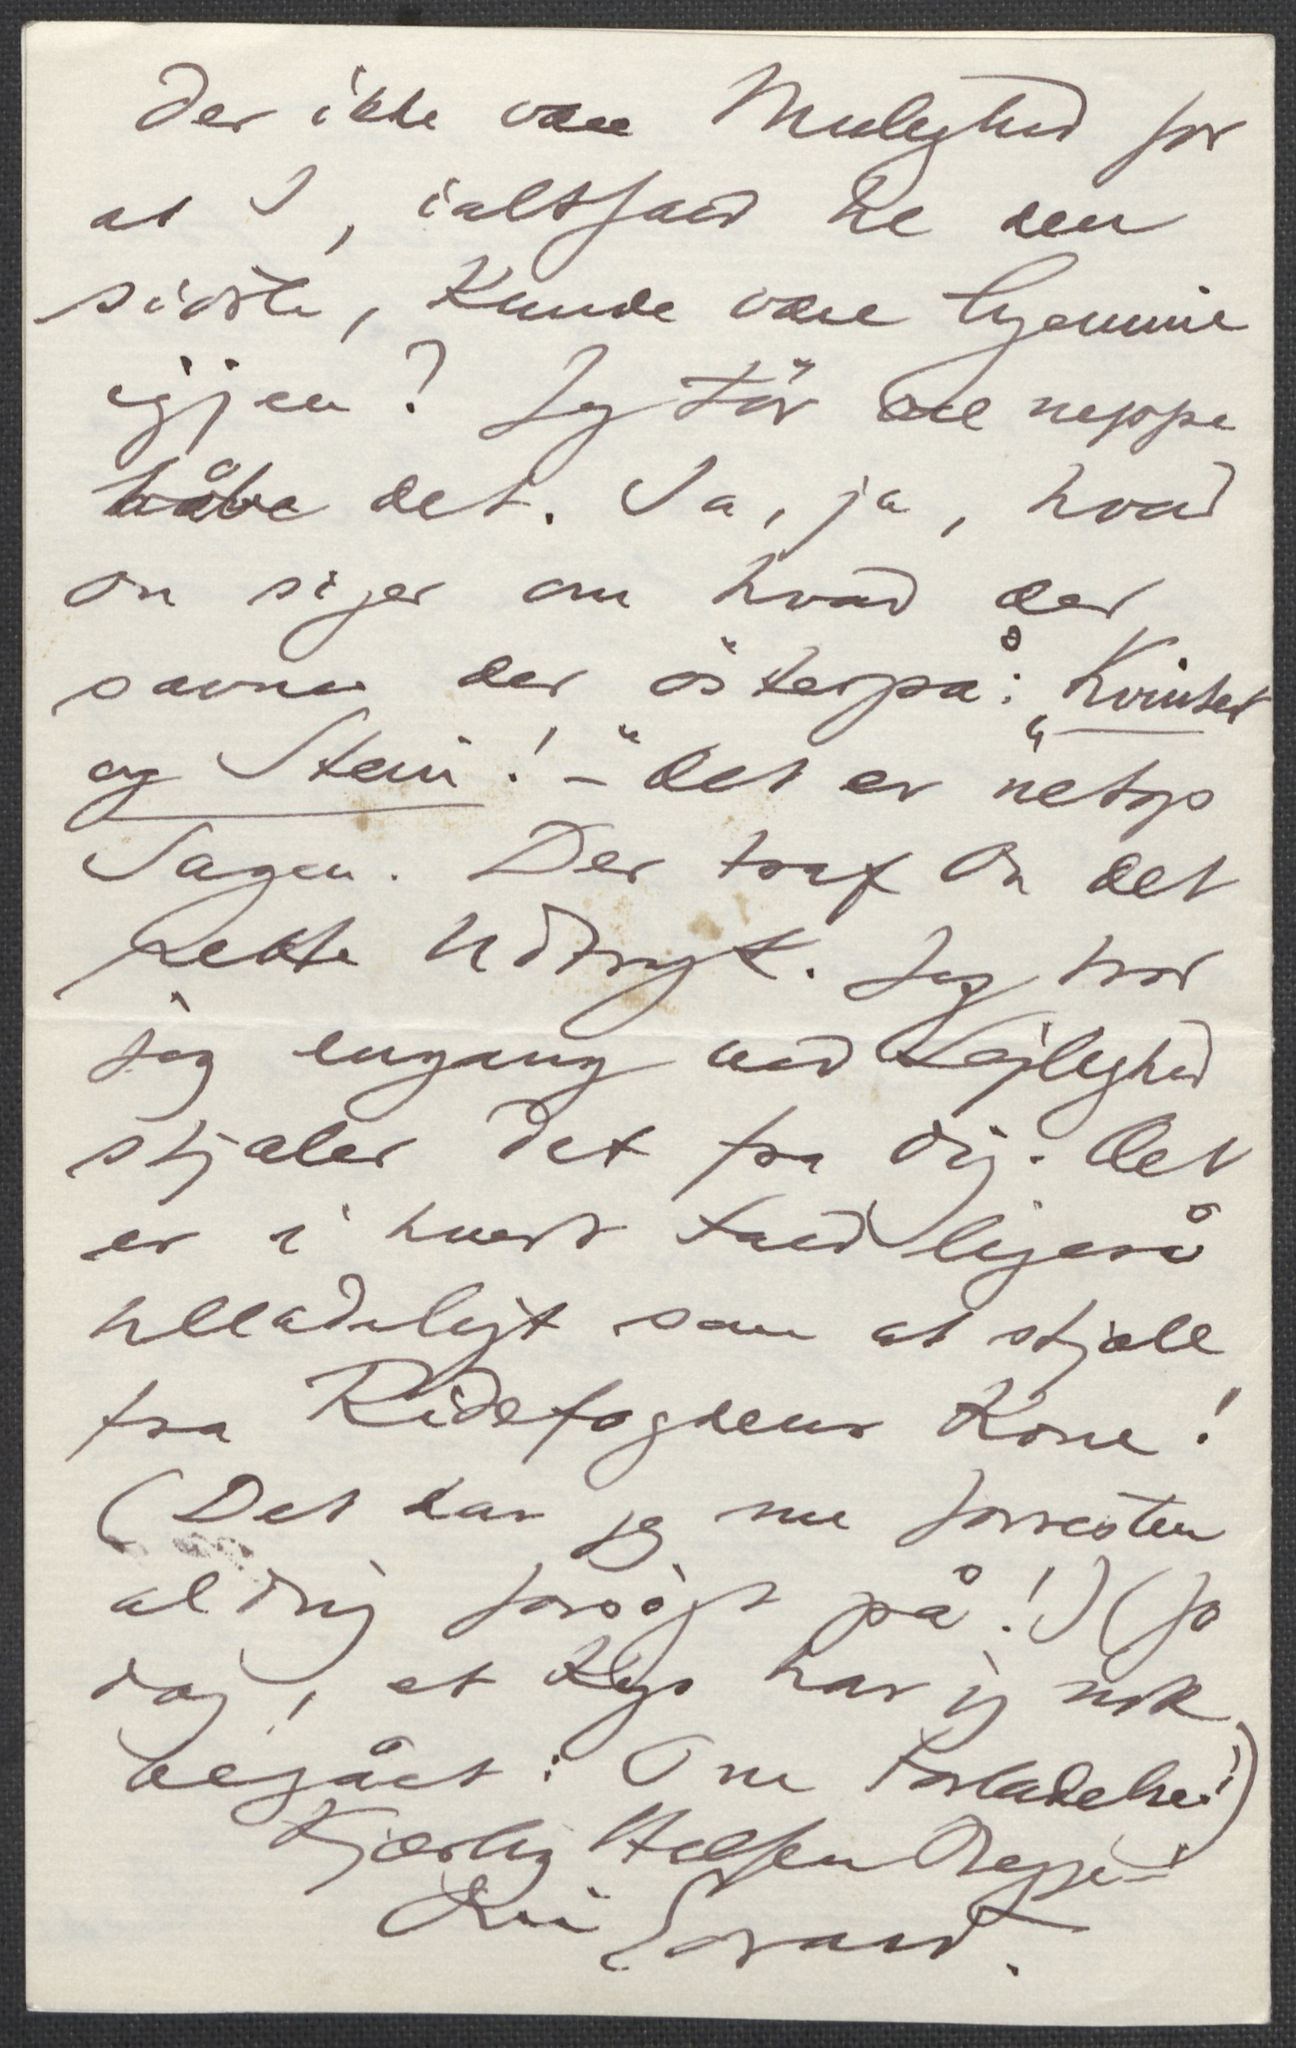 der ikke være Mulighed for
at I, ialtfald til den
sidste, kunde være hjemme
igjen? Jeg tör neppe
håbe det. Ja, ja, hvad
du siger om hvad der
savnes der österpå: „Kvinter
og Stein!" – det er netop
Sagen. Der traf du det
rette Udtryk. Jeg tror
jeg engang ved Lejlighed
stjæler det fra dig. Det
er i hvert Fald ligeså
tilladeligt som at stjæle
fra Ridefogdens Kone!
(Det har jeg nu forresten
aldrig forsögt på!) (Jo
dog, et Kys har jeg nok
begået: Om Forladelse!)
Kjærlig Hilsen Begge
Din Edvard.